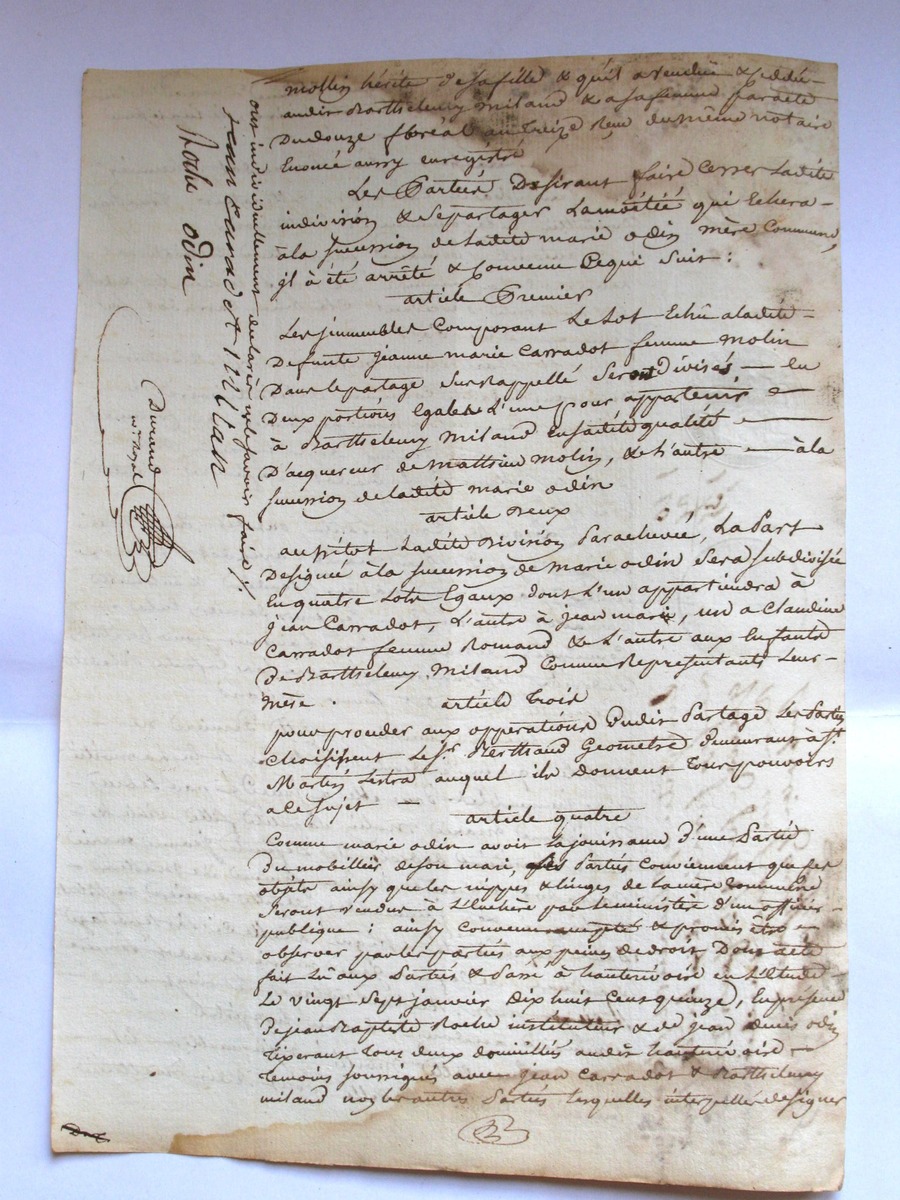 mollin hérite de sa fille & qu'il a vendue & cedée
audit Barthelemy miland & a sa femme par acte
Du douze floréal an treize Reçu du même notaire
Enoncé aussy enregistré
Les Parties Desirant faire Cesser Ladite
indivision & se partager La moëtié qui Echera
à la sucession de Ladite marie odin mère Commune,
il à été arrêté & Convenu Ce qui suit :
article Premier
Les jmmeubles Composant Le Lot Echû a ladite
Defunte jeanne marie Carradot femme molin
Dans le partage Susrappellé Seront divisés en
Deux portions Egales L'une pour appartenir
à Barthelemy miland En sadite qualité
D'acquereur de matthieu molin, & L'autre à la
sucession de ladite marie odin
article Deux
aussitot Ladite Division Parachevée, La Part
Designée à la sucession de marie odin Sera subdivisée
En quatre Lots Egaux dont L'un appartiendra à
jean Carradot, L'autre à jean marie, un a Claudine
Carradot femme Romand & L'autre aux Enfants
De Barthelemy miland Comme Representants Leur
mère .
article trois
pour proceder aux opperations Dudit Partage Les Parties
Choisissent Le Sr. Berthaud Geometre demeurant à St.
Martin Lestra auquel ils donnent tous pouvoirs
a ce sujet
article quatre
Comme marie odin avoit La jouissance D'une Partie
Du mobillier de son mari, les Parties Conviennent que ces
objets ainsy que les nippes & linges de La mère Commune
Seront vendus à L'Enchère par le ministère d'un officier
publique : ainsy Convenu accepté & promis être
observer par les parties aux peines de droit, Dont acte
fait Lû aux Parties & Passé à hauterivoire en L'Etude
Le vingt Sept janvier dix huit Cent quinze, En presence
De jean Baptiste Roche instituteur & de jean denis odin
tixerant tous deux domiciliés audit hauterivoire
temoins soussignés avec jean Carradot & Barthelemy
miland non les autres Parties lesquelles interpellées de signer
ont individuellement declaré ne le savoir faire ./.
jean Carradot Milan
Roche odin
Durand
nre. Royal